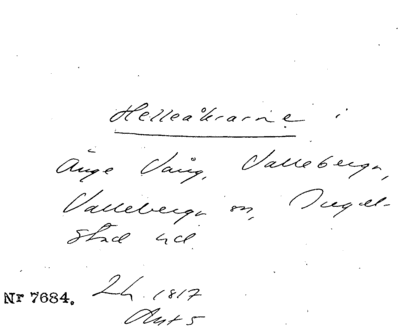 Helleåkrarne i
Änge Vång, Valleberga,
Valleberga sn, Ingel-
stad hd.
Nr 7684. Lh. 1817
Akt 5